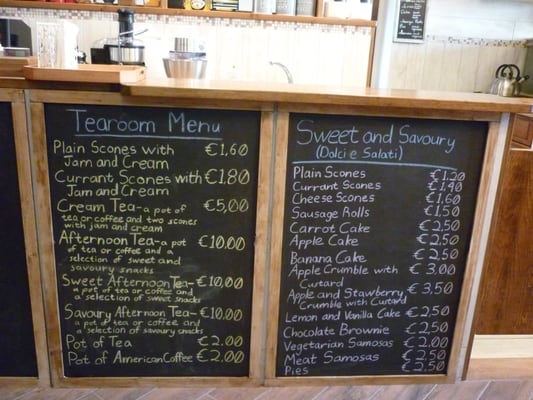 Tearoom Menu
Plain Scones with €1,60
Jam and Cream
Currant Scones with €1.80
Jam and Cream
Cream Tea-a pot of €5,00
tea or coffee and two scones
with jam and cream
Afternoon Tea-a pot €10.00
of tea or coffee and a
selection of sweet and
savoury snacks
Sweet Afternoon Tea- €10,00
a pot of tea or coffee and
a selection of sweet snacks
Savoury Afternoon Tea- €10.00
a pot of tea or coffee and
a selection of savoury snacks
Pot of Tea €2.00
Pot of American Coffee €2,00
Sweet and Savoury
(Dolci e Salati)
Plain Scones €1.20
Currant Scones €1.40
Cheese Scones €1.60
Sausage Rolls €1.50
Carrot Cake €2,50
Apple Cake €2,50
Banana Cake €2,50
Apple Crumble with €3,00
Custard
Apple and Stawberry €3,50
Crumble with Custard
Lemon and Vanilla Cake €2,50
Chocolate Brownie €2,50
Vegetarian Samosas €2,00
Meat Samosas €2,50
Pies €2,50